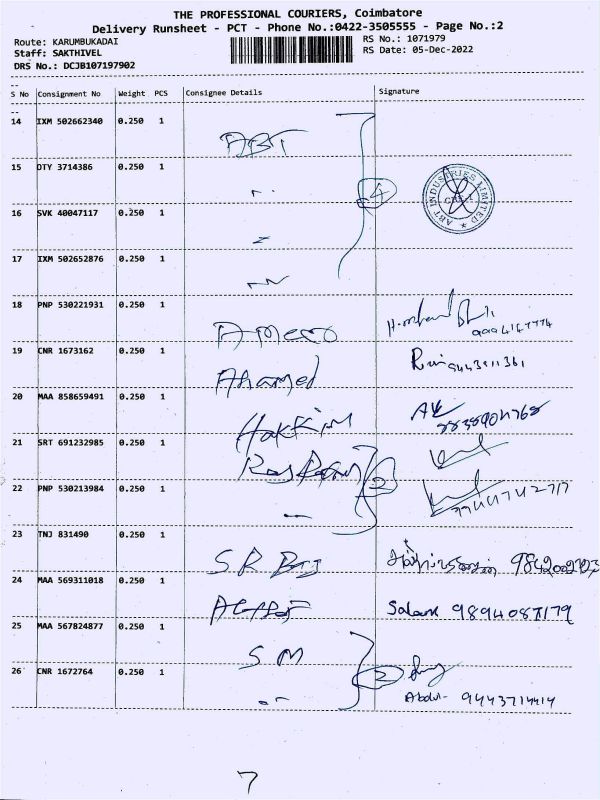 THE PROFESSIONAL COURIERS, Coimbatore
Delivery Runsheet - PCT - Phone No.:0422-3505555 - Page No.:2
Route: KARUMBUKADAI
Staff: SAKTHIVEL
DRS No.: DCJB107197902
RS No.: 1071979
RS Date: 05-Dec-2022
S No Consignment No Weight PCS Consignee Details Signature
14 IXM 502662340 0.250 1 ABT
15 DTY 3714386 0.250 1
4
ABT INDUSTRIES LIMITED
16 SVK 40047117 0.250 1
17 IXM 502652876 0.250 1
18 PNP 530221931 0.250 1
19 CNR 1673162 0.250 1 Ahamed
20 MAA 858659491 0.250 1 Hakkim
21 SRT 691232985 0.250 1
22 PNP 530213984 0.250 1
2
23 TNJ 831490 0.250 1 S R
24 MAA 569311018 0.250 1 Salam
25 MAA 567824877 0.250 1 S M
2
26 CNR 1672764 0.250 1 Abdul- 9443714414
7